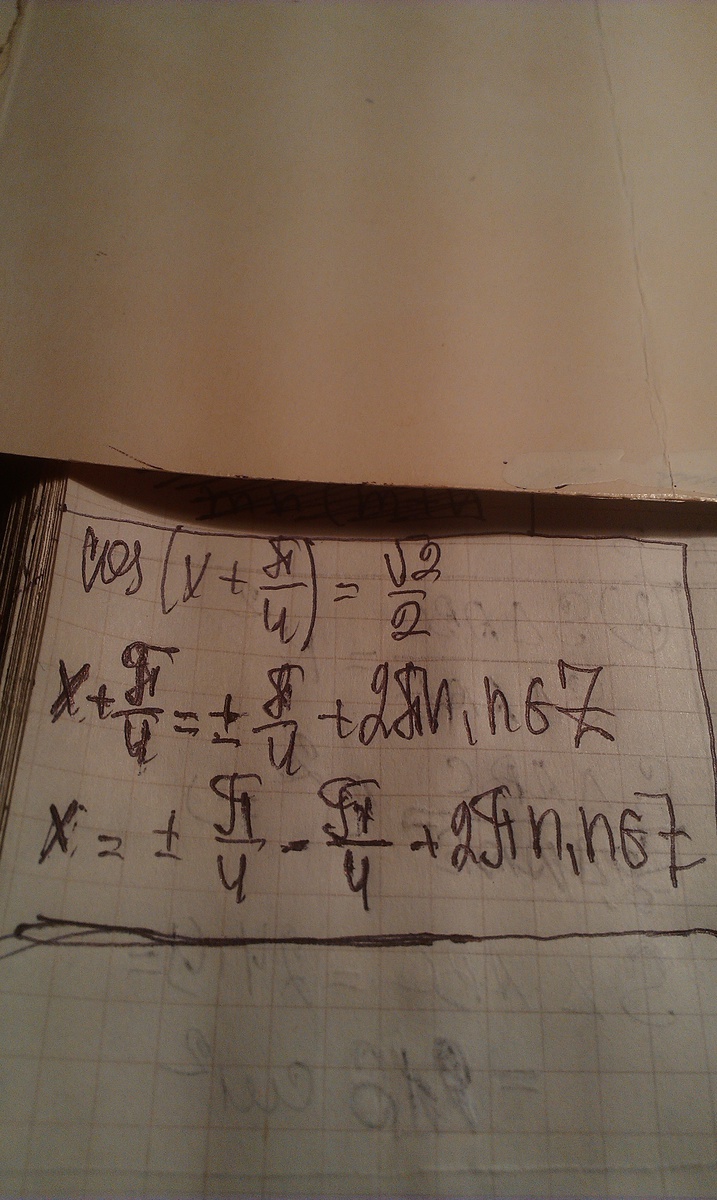 cos(x + π/4) = √2/2
x + π/4 = ± π/4 + 2πn, n ∈ Z
x = ± π/4 - π/4 + 2πn, n ∈ Z